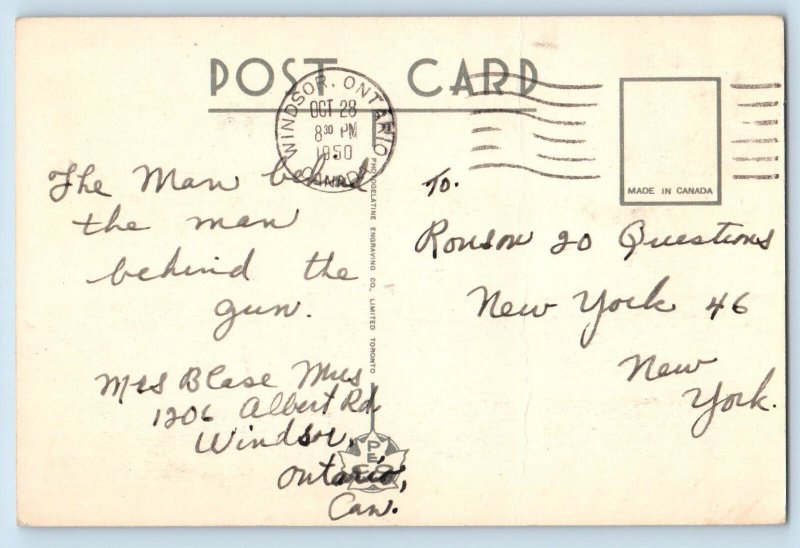 POST CARD
WINDSOR, ONTARIO
OCT 28
8 30 PM
1950
CANADA
MADE IN CANADA
The Man behind
the man
behind the
gun.
Mrs Blase Mus
1206 Albert Rd
Windsor,
Ontario,
Can.
PHOTOGELATINE ENGRAVING CO., LIMITED TORONTO
To.
Ronson 20 Questions
New York 46
New
York.